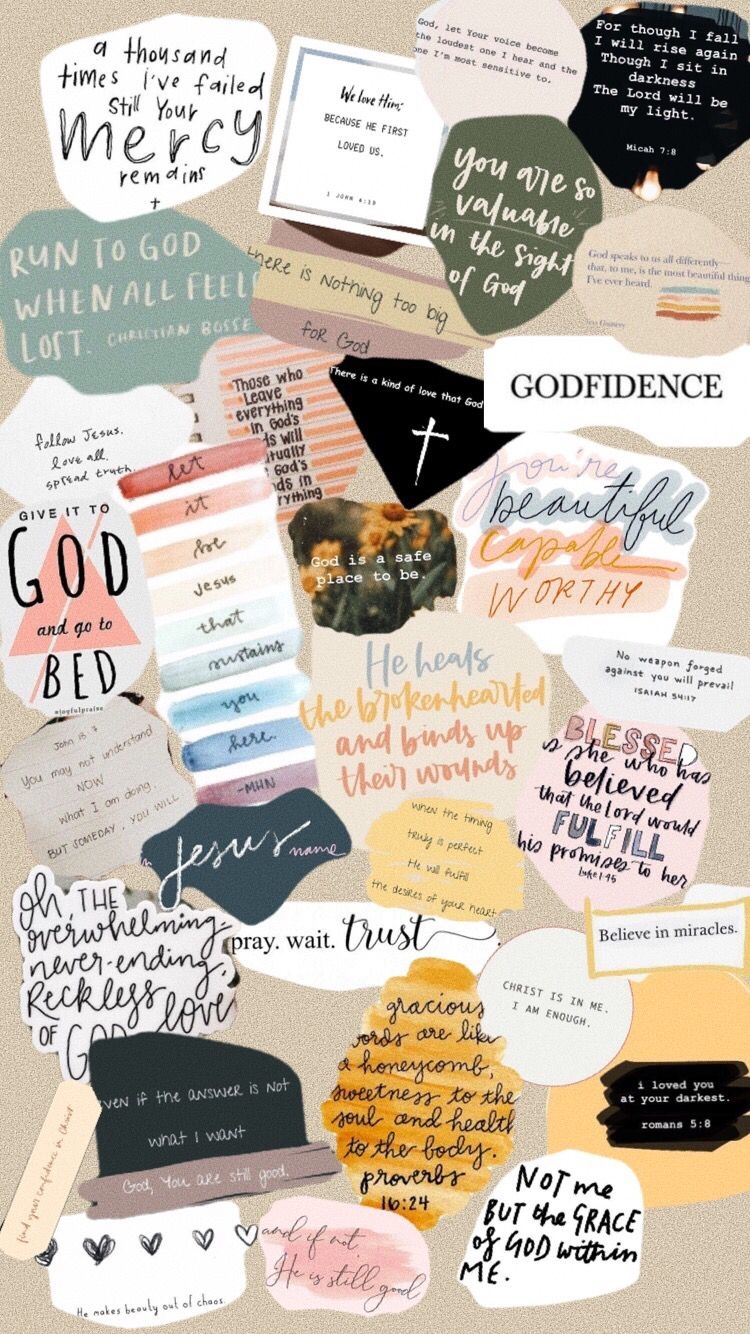 a thousand
times i've failed
Still Your
mercy
remains
We love Him;
BECAUSE HE FIRST
LOVED US.
1 JOHN 4:19
God, let Your voice become
the loudest one I hear and the
one I'm most sensitive to.
For though I fall
I will rise again
Though I sit in
darkness
The Lord will be
my light.
Micah 7:8
you are so
valuable
in the sight
of God
RUN TO GOD
WHEN ALL FEELS
LOST. CHRISTIAN BOSSE
there is nothing too big
for God
God speaks to us all differently—
that, to me, is the most beautiful thing
I've ever heard.
GODFIDENCE
follow Jesus.
love all.
spread truth.
Those who
Leave
everything
in God's
ds will
tually
God's
ds in
rything
There is a kind of love that God
you're
beautiful
Capable
WORTHY
GIVE IT TO
GOD
and go to
BED
@joyfulpraise
let
it
be
Jesus
that
sustains
you
here.
-MHN
God is a safe
place to be.
He heals
the brokenhearted
and binds up
their wounds
No weapon forged
against you will prevail
ISAIAH 54:17
John 13:7
You may not understand
NOW
what I am doing.
BUT SOMEDAY, YOU WILL
BLESSED
is she who has
believed
that the Lord would
FULFILL
his promises to her
Luke 1:45
Jesus name
when the timing
truly is perfect
He will fulfill
the desires of your heart
Oh, THE
overwhelming
never-ending,
Reckless
OF GOD love
pray. wait. trust.
Believe in miracles.
CHRIST IS IN ME.
I AM ENOUGH.
gracious
words are like
a honeycomb,
sweetness to the
soul and health
to the body.
proverbs
16:24
i loved you
at your darkest.
romans 5:8
even if the answer is not
what I want
God, You are still good.
find your confidence in Christ
He makes beauty out of chaos.
and if not,
He is still good
NOT me
BUT the GRACE
of GOD within
ME.